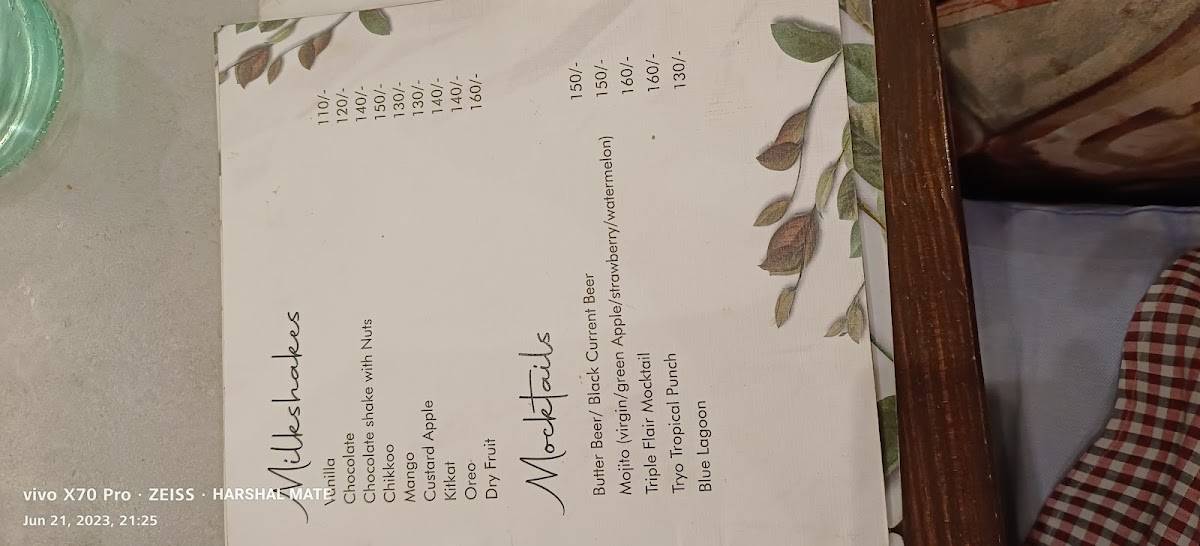 Milkshakes
Vanilla 110/-
Chocolate 120/-
Chocolate shake with Nuts 140/-
Chikkoo 150/-
Mango 130/-
Custard Apple 130/-
Kitkat 140/-
Oreo 140/-
Dry Fruit 160/-
Mocktails
Butter Beer/ Black Current Beer 150/-
Mojito (virgin/green Apple/strawberry/watermelon) 150/-
Triple Flair Mocktail 160/-
Tryo Tropical Punch 160/-
Blue Lagoon 130/-
vivo X70 Pro · ZEISS · HARSHAL MATE
Jun 21, 2023, 21:25